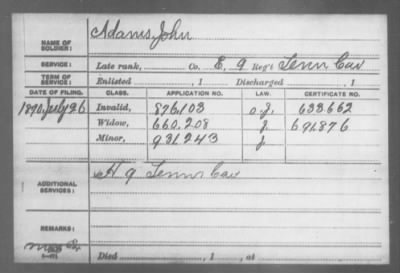 NAME OF SOLDIER: Adams, John
SERVICE: Late rank, Co. E, 9 Reg't Tenn Cav
TERM OF SERVICE: Enlisted , 1 Discharged , 1
DATE OF FILING. CLASS. APPLICATION NO. LAW. CERTIFICATE NO.
1890, July 26 Invalid, 876,103 633662
Widow, 660,208 J. 691,876
Minor, 931,243 J.
ADDITIONAL SERVICES: H 9 Tenn Cav
REMARKS:
Died , 1 , at